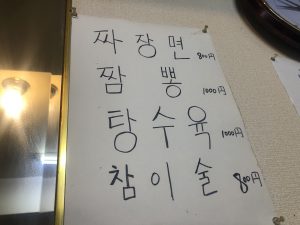 짜장면 800円
짬뽕 1000円
탕수육 1000円
참이슬 800円